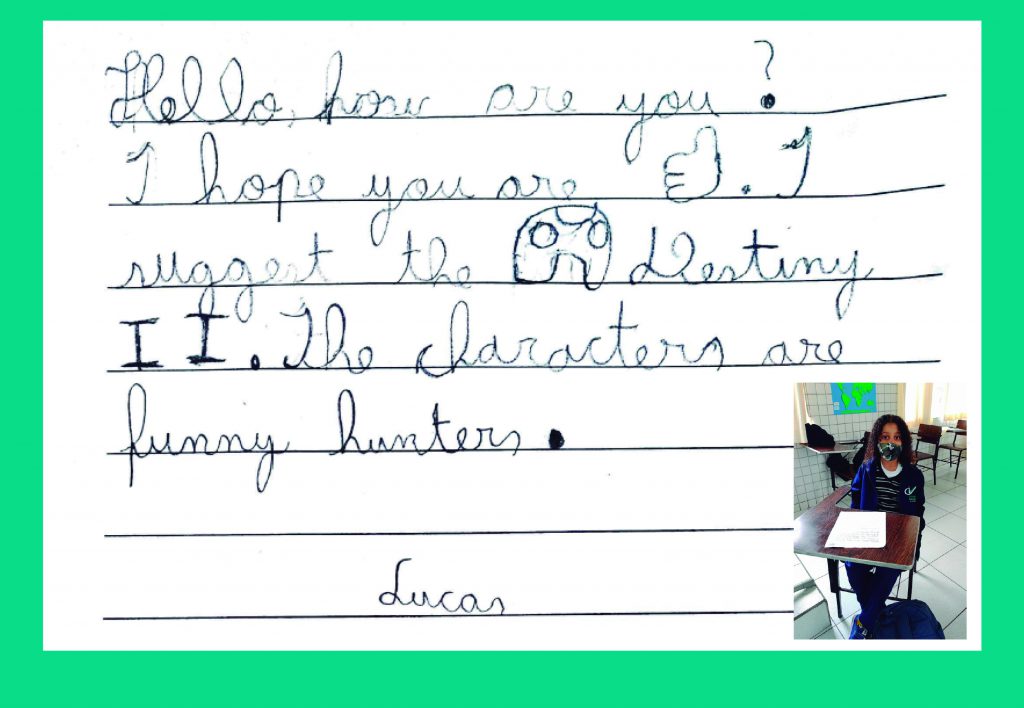 Hello, how are you?
I hope you are 👍. I
suggest the 🎮 Destiny
II. The characters are
funny hunters.
Lucas